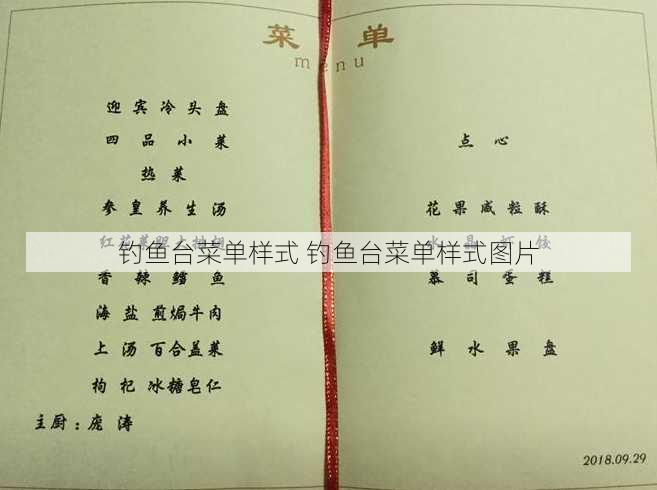 菜 单
menu
迎宾冷头盘
四品小菜
热菜
参皇养生汤
香辣鳕鱼
海盐煎焗牛肉
上汤百合盖菜
枸杞冰糖皂仁
主厨：庞涛
点心
花果咸粒酥
慕司蛋糕
鲜水果盘
2018.09.29
钓鱼台菜单样式 钓鱼台菜单样式图片